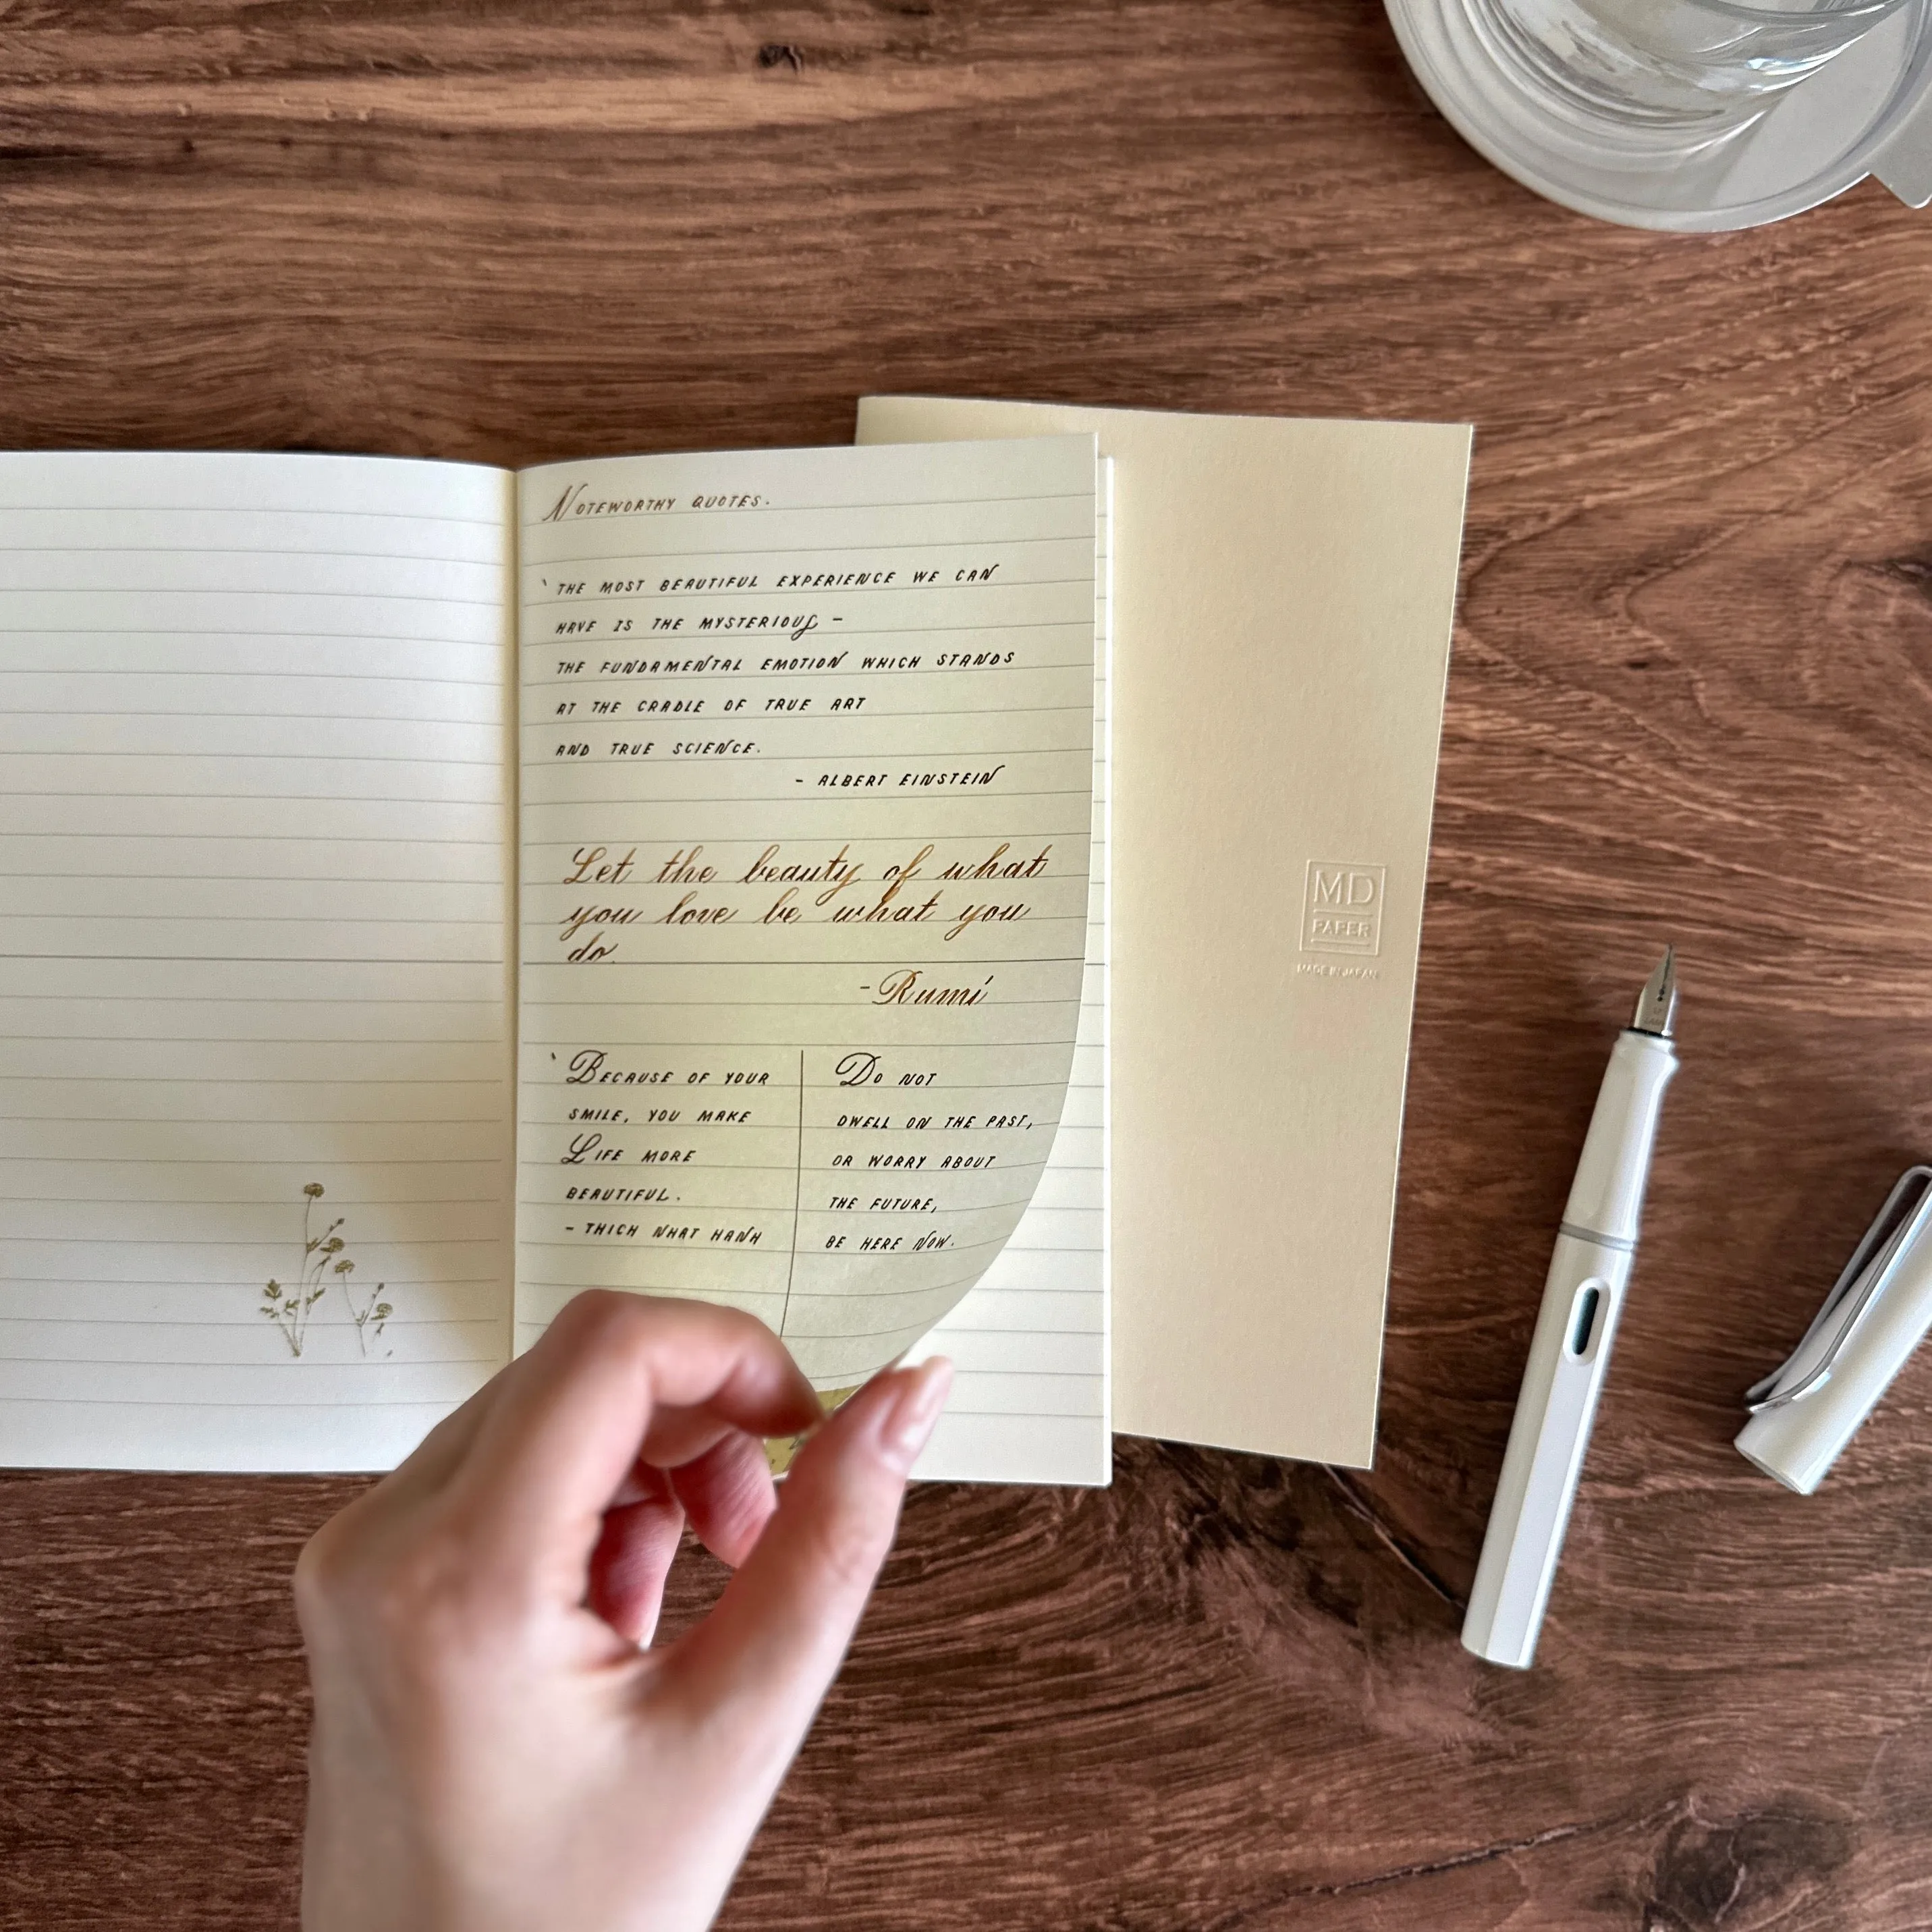 NOTEWORTHY QUOTES.
‘THE MOST BEAUTIFUL EXPERIENCE WE CAN
HAVE IS THE MYSTERIOUS –
THE FUNDAMENTAL EMOTION WHICH STANDS
AT THE CRADLE OF TRUE ART
AND TRUE SCIENCE.
– ALBERT EINSTEIN
Let the beauty of what
you love be what you
do.
- Rumi
‘BECAUSE OF YOUR
SMILE, YOU MAKE
LIFE MORE
BEAUTIFUL.
– THICH NHAT HANH
DO NOT
DWELL ON THE PAST,
OR WORRY ABOUT
THE FUTURE,
BE HERE NOW.
MD
PAPER
MADE IN JAPAN